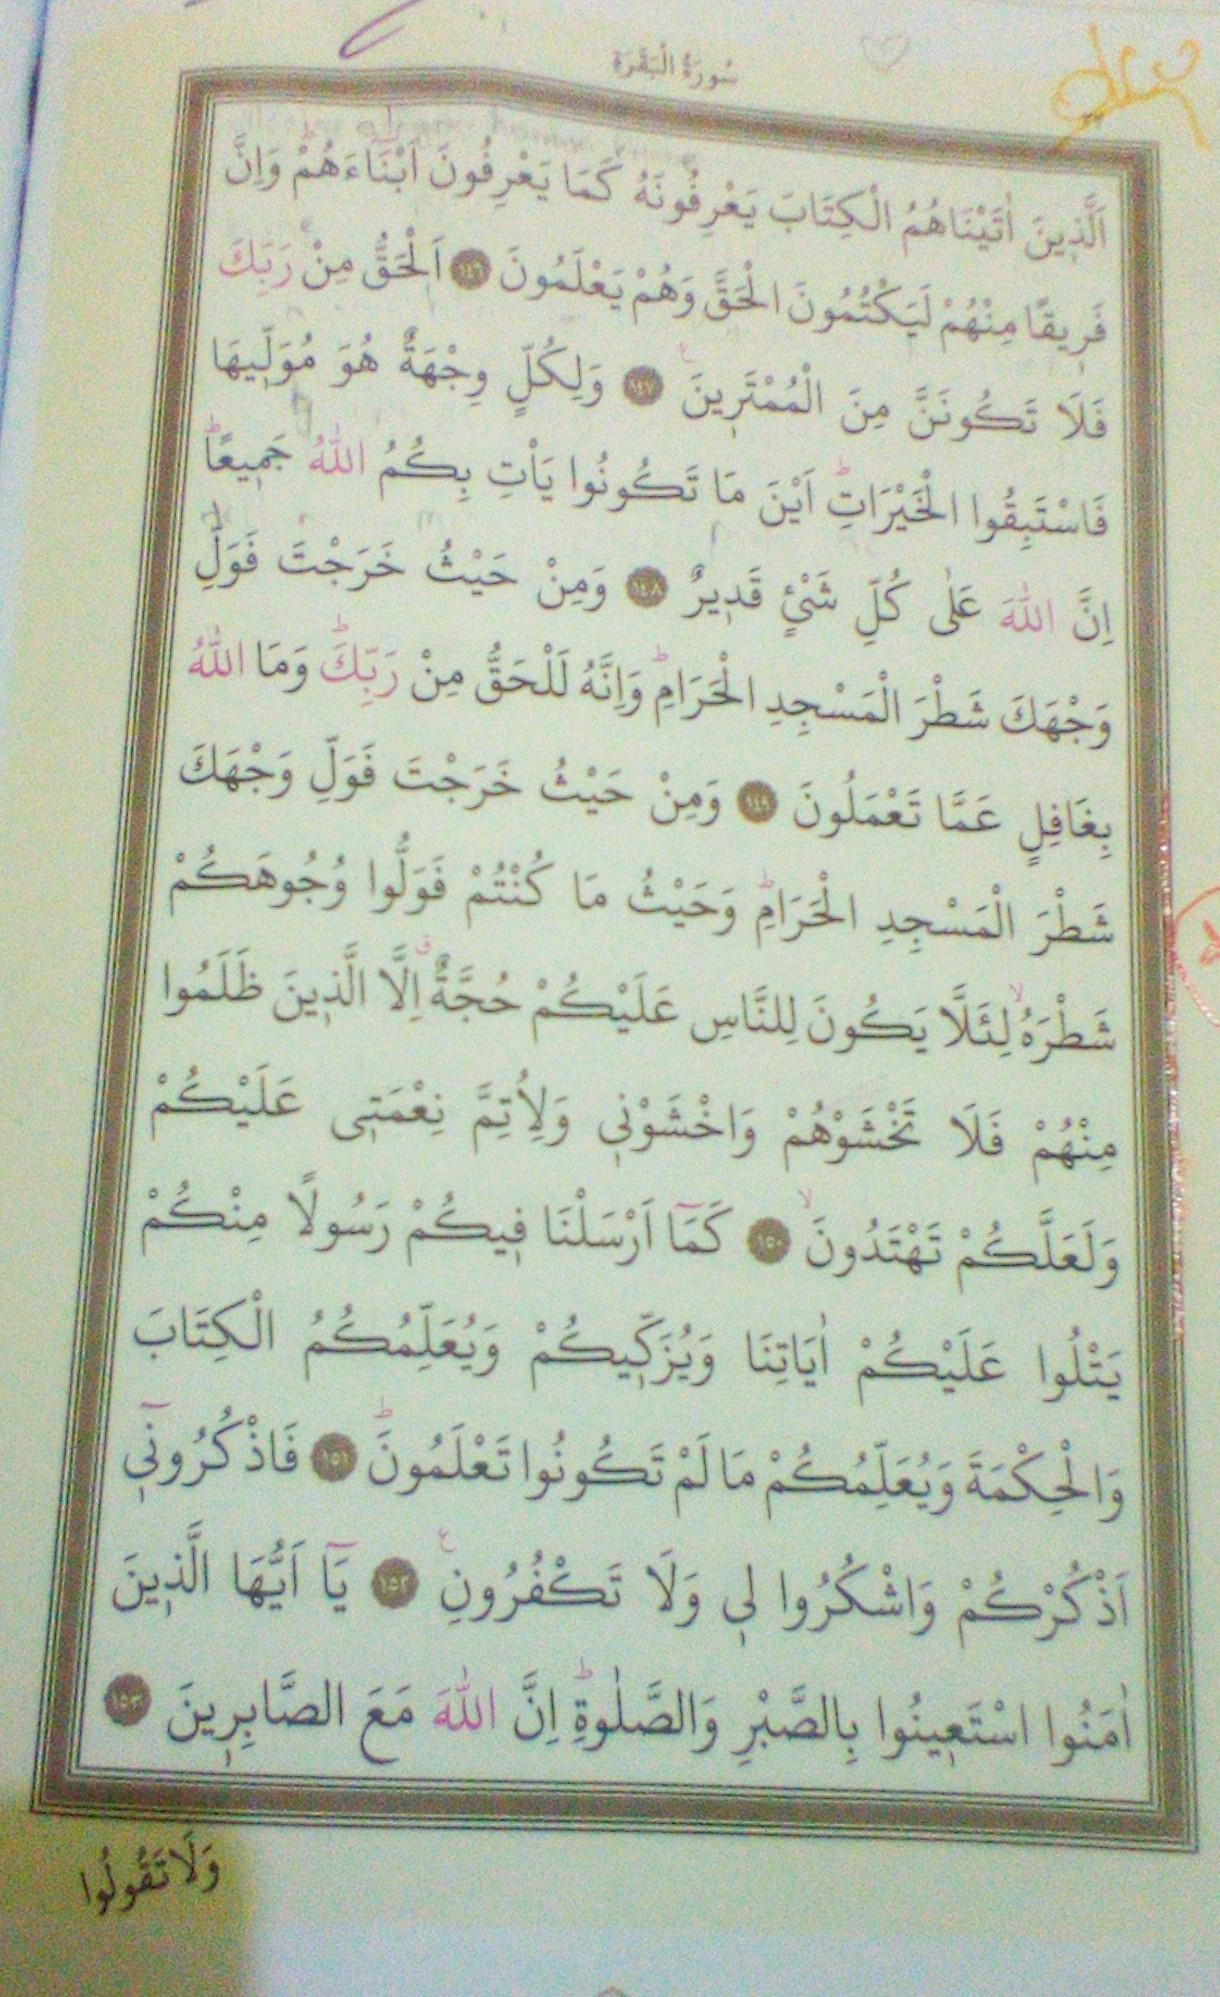 سُورَةُ الْبَقَرَةِ
اَلَّذ۪ينَ اٰتَيْنَاهُمُ الْكِتَابَ يَعْرِفُونَهُ كَمَا يَعْرِفُونَ اَبْنَٓاءَهُمْۜ وَاِنَّ
فَر۪يقًا مِنْهُمْ لَيَكْتُمُونَ الْحَقَّ وَهُمْ يَعْلَمُونَ ﴿١٤٦﴾ اَلْحَقُّ مِنْ رَبِّكَ
فَلَا تَكُونَنَّ مِنَ الْمُمْتَر۪ينَ ﴿١٤٧﴾ وَلِكُلٍّ وِجْهَةٌ هُوَ مُوَلّ۪يهَا
فَاسْتَبِقُوا الْخَيْرَاتِۜ اَيْنَ مَا تَكُونُوا يَأْتِ بِكُمُ اللّٰهُ جَم۪يعًاۜ
اِنَّ اللّٰهَ عَلٰى كُلِّ شَيْءٍ قَد۪يرٌ ﴿١٤٨﴾ وَمِنْ حَيْثُ خَرَجْتَ فَوَلِّ
وَجْهَكَ شَطْرَ الْمَسْجِدِ الْحَرَامِۜ وَاِنَّهُ لَلْحَقُّ مِنْ رَبِّكَۜ وَمَا اللّٰهُ
بِغَافِلٍ عَمَّا تَعْمَلُونَ ﴿١٤٩﴾ وَمِنْ حَيْثُ خَرَجْتَ فَوَلِّ وَجْهَكَ
شَطْرَ الْمَسْجِدِ الْحَرَامِۜ وَحَيْثُ مَا كُنْتُمْ فَوَلُّوا وُجُوهَكُمْ
شَطْرَهُۙ لِئَلَّا يَكُونَ لِلنَّاسِ عَلَيْكُمْ حُجَّةٌۗ اِلَّا الَّذ۪ينَ ظَلَمُوا
مِنْهُمْ فَلَا تَخْشَوْهُمْ وَاخْشَوْن۪ي وَلِاُتِمَّ نِعْمَت۪ي عَلَيْكُمْ
وَلَعَلَّكُمْ تَهْتَدُونَۙ ﴿١٥٠﴾ كَمَٓا اَرْسَلْنَا ف۪يكُمْ رَسُولًا مِنْكُمْ
يَتْلُوا عَلَيْكُمْ اٰيَاتِنَا وَيُزَكّ۪يكُمْ وَيُعَلِّمُكُمُ الْكِتَابَ
وَالْحِكْمَةَ وَيُعَلِّمُكُمْ مَا لَمْ تَكُونُوا تَعْلَمُونَۜ ﴿١٥١﴾ فَاذْكُرُون۪ٓي
اَذْكُرْكُمْ وَاشْكُرُوا ل۪ي وَلَا تَكْفُرُونِ ﴿١٥٢﴾ يَٓا اَيُّهَا الَّذ۪ينَ
اٰمَنُوا اسْتَع۪ينُوا بِالصَّبْرِ وَالصَّلٰوةِۜ اِنَّ اللّٰهَ مَعَ الصَّابِر۪ينَ ﴿١٥٣﴾
وَلَا تَقُولُوا